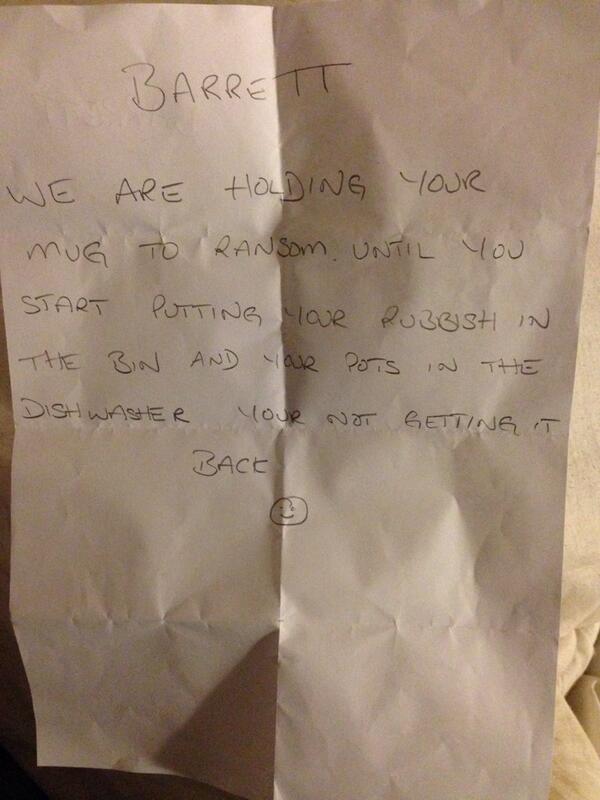 BARRETT
WE ARE HOLDING YOUR
MUG TO RANSOM. UNTIL YOU
START PUTTING YOUR RUBBISH IN
THE BIN AND YOUR POTS IN THE
DISHWASHER YOUR NOT GETTING IT
BACK